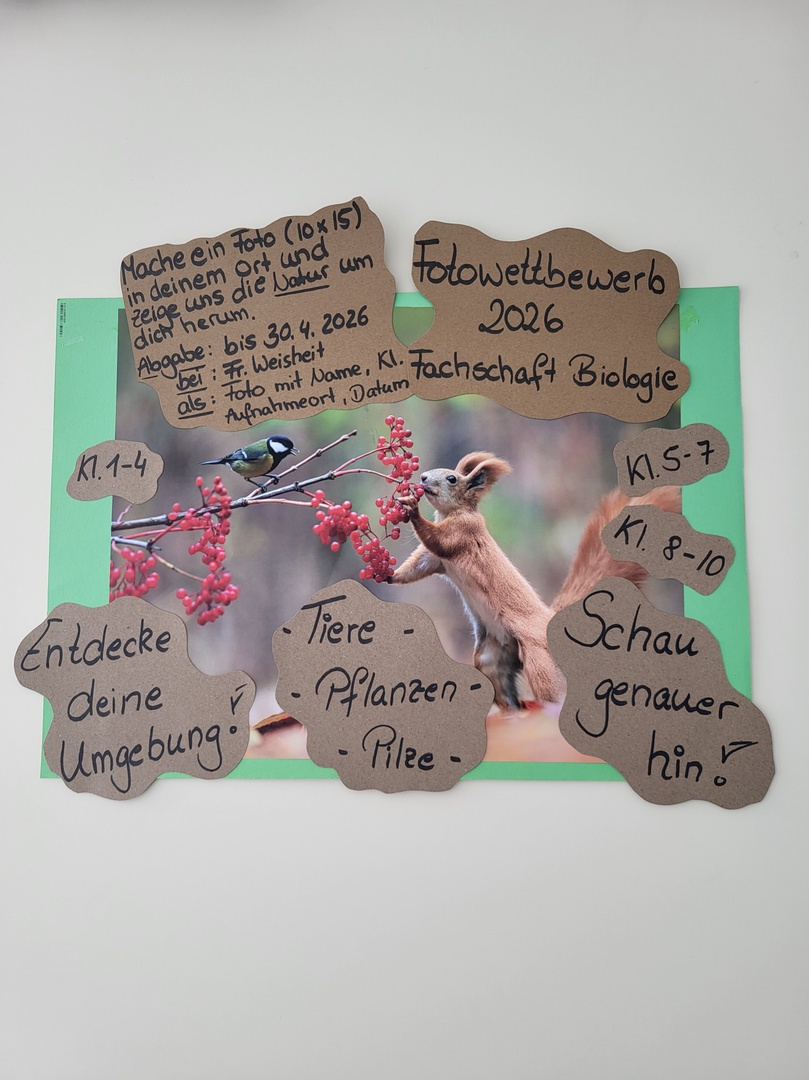 Mache ein Foto (10x15)
in deinem Ort und
zeige uns die Natur um
dich herum.
Abgabe: bis 30.4.2026
bei: Fr. Weisheit
als: Foto mit Name, Kl.
Aufnahmeort, Datum
Fotowettbewerb
2026
Fachschaft Biologie
Kl. 1-4
Kl. 5-7
Kl. 8-10
Entdecke
deine
Umgebung!
- Tiere -
- Pflanzen -
- Pilze -
Schau
genauer
hin!